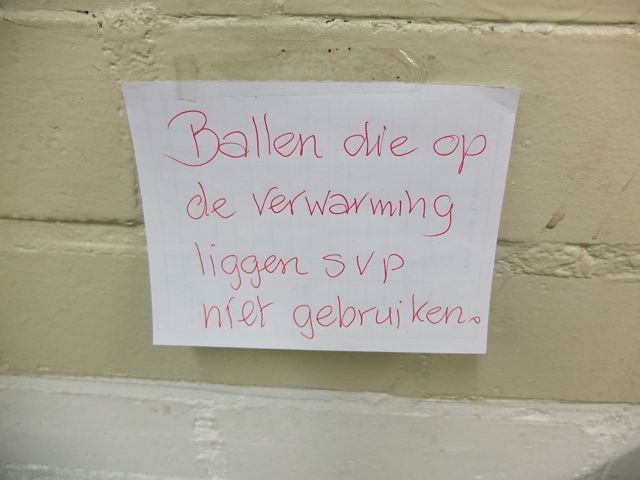 Ballen die op
de verwarming
liggen svp
niet gebruiken.